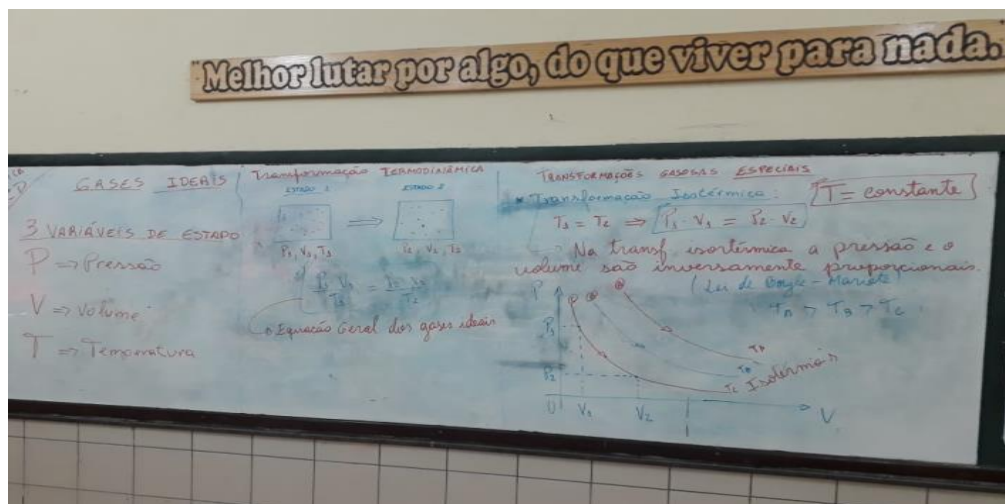 "Melhor lutar por algo, do que viver para nada."
GASES IDEAIS
3 VARIÁVEIS DE ESTADO
P => Pressão
V => Volume
T => Temperatura
Transformação TERMODINÂMICA
ESTADO 1
ESTADO 2
P₁, V₁, T₁
P₂, V₂, T₂
P₁ V₁ / T₁ = P₂ V₂ / T₂
Equação Geral dos gases ideais
TRANSFORMAÇÕES GASOSAS ESPECIAIS
Transformação Isotérmica:
T = constante
T₁ = T₂ => P₁ · V₁ = P₂ · V₂
Na transf. isortérmica a pressão e o
volume são inversamente proporcionais.
(Lei de Boyle - Mariote)
P
P₁
P₂
0
V₁
V₂
V
TB
TC
Isotermas